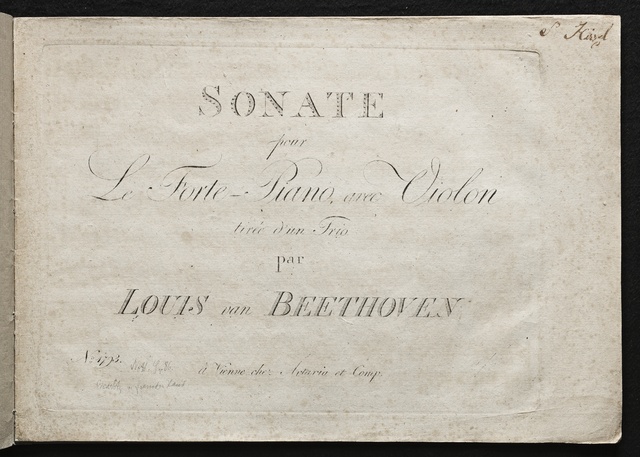 SONATE
pour
Le Forte-Piano, avec Violon
tirée d'un Trio
par
LOUIS van BEETHOVEN
No. 1793.
à Vienne chez Artaria et Comp.